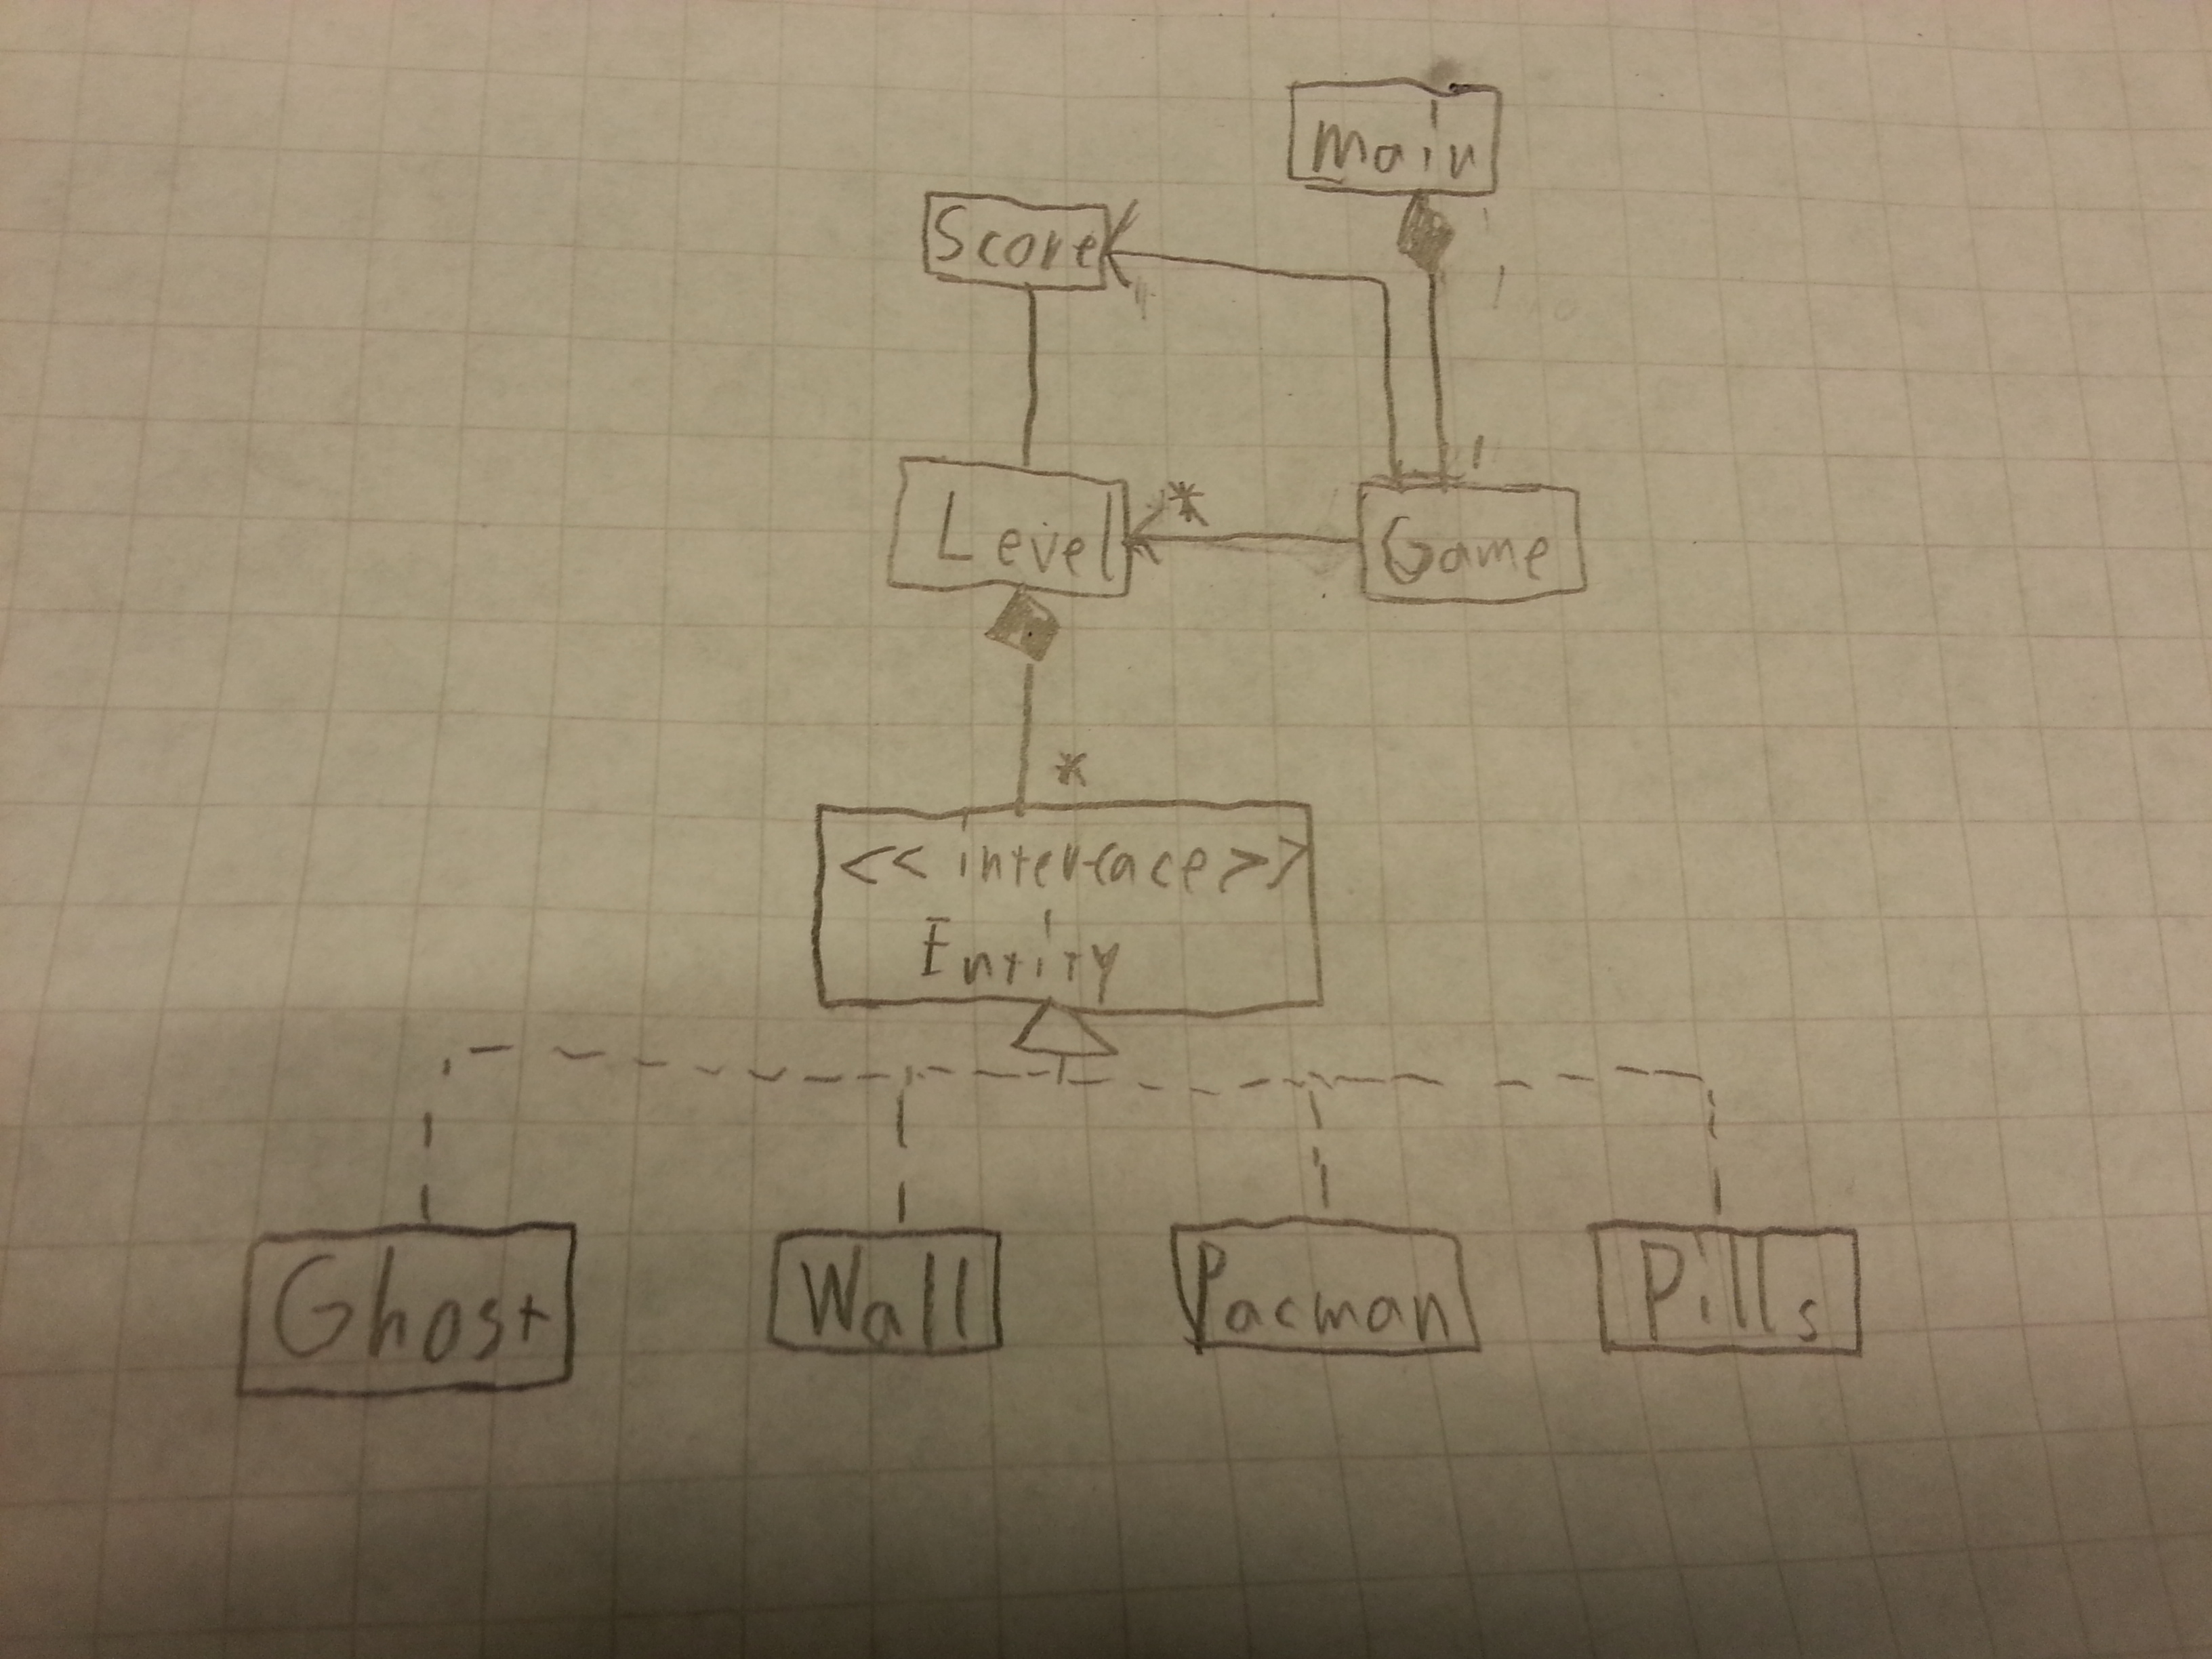 main
Score
1
*
Level
Game
*
<<interface>>
Entity
Ghost
Wall
Pacman
Pills